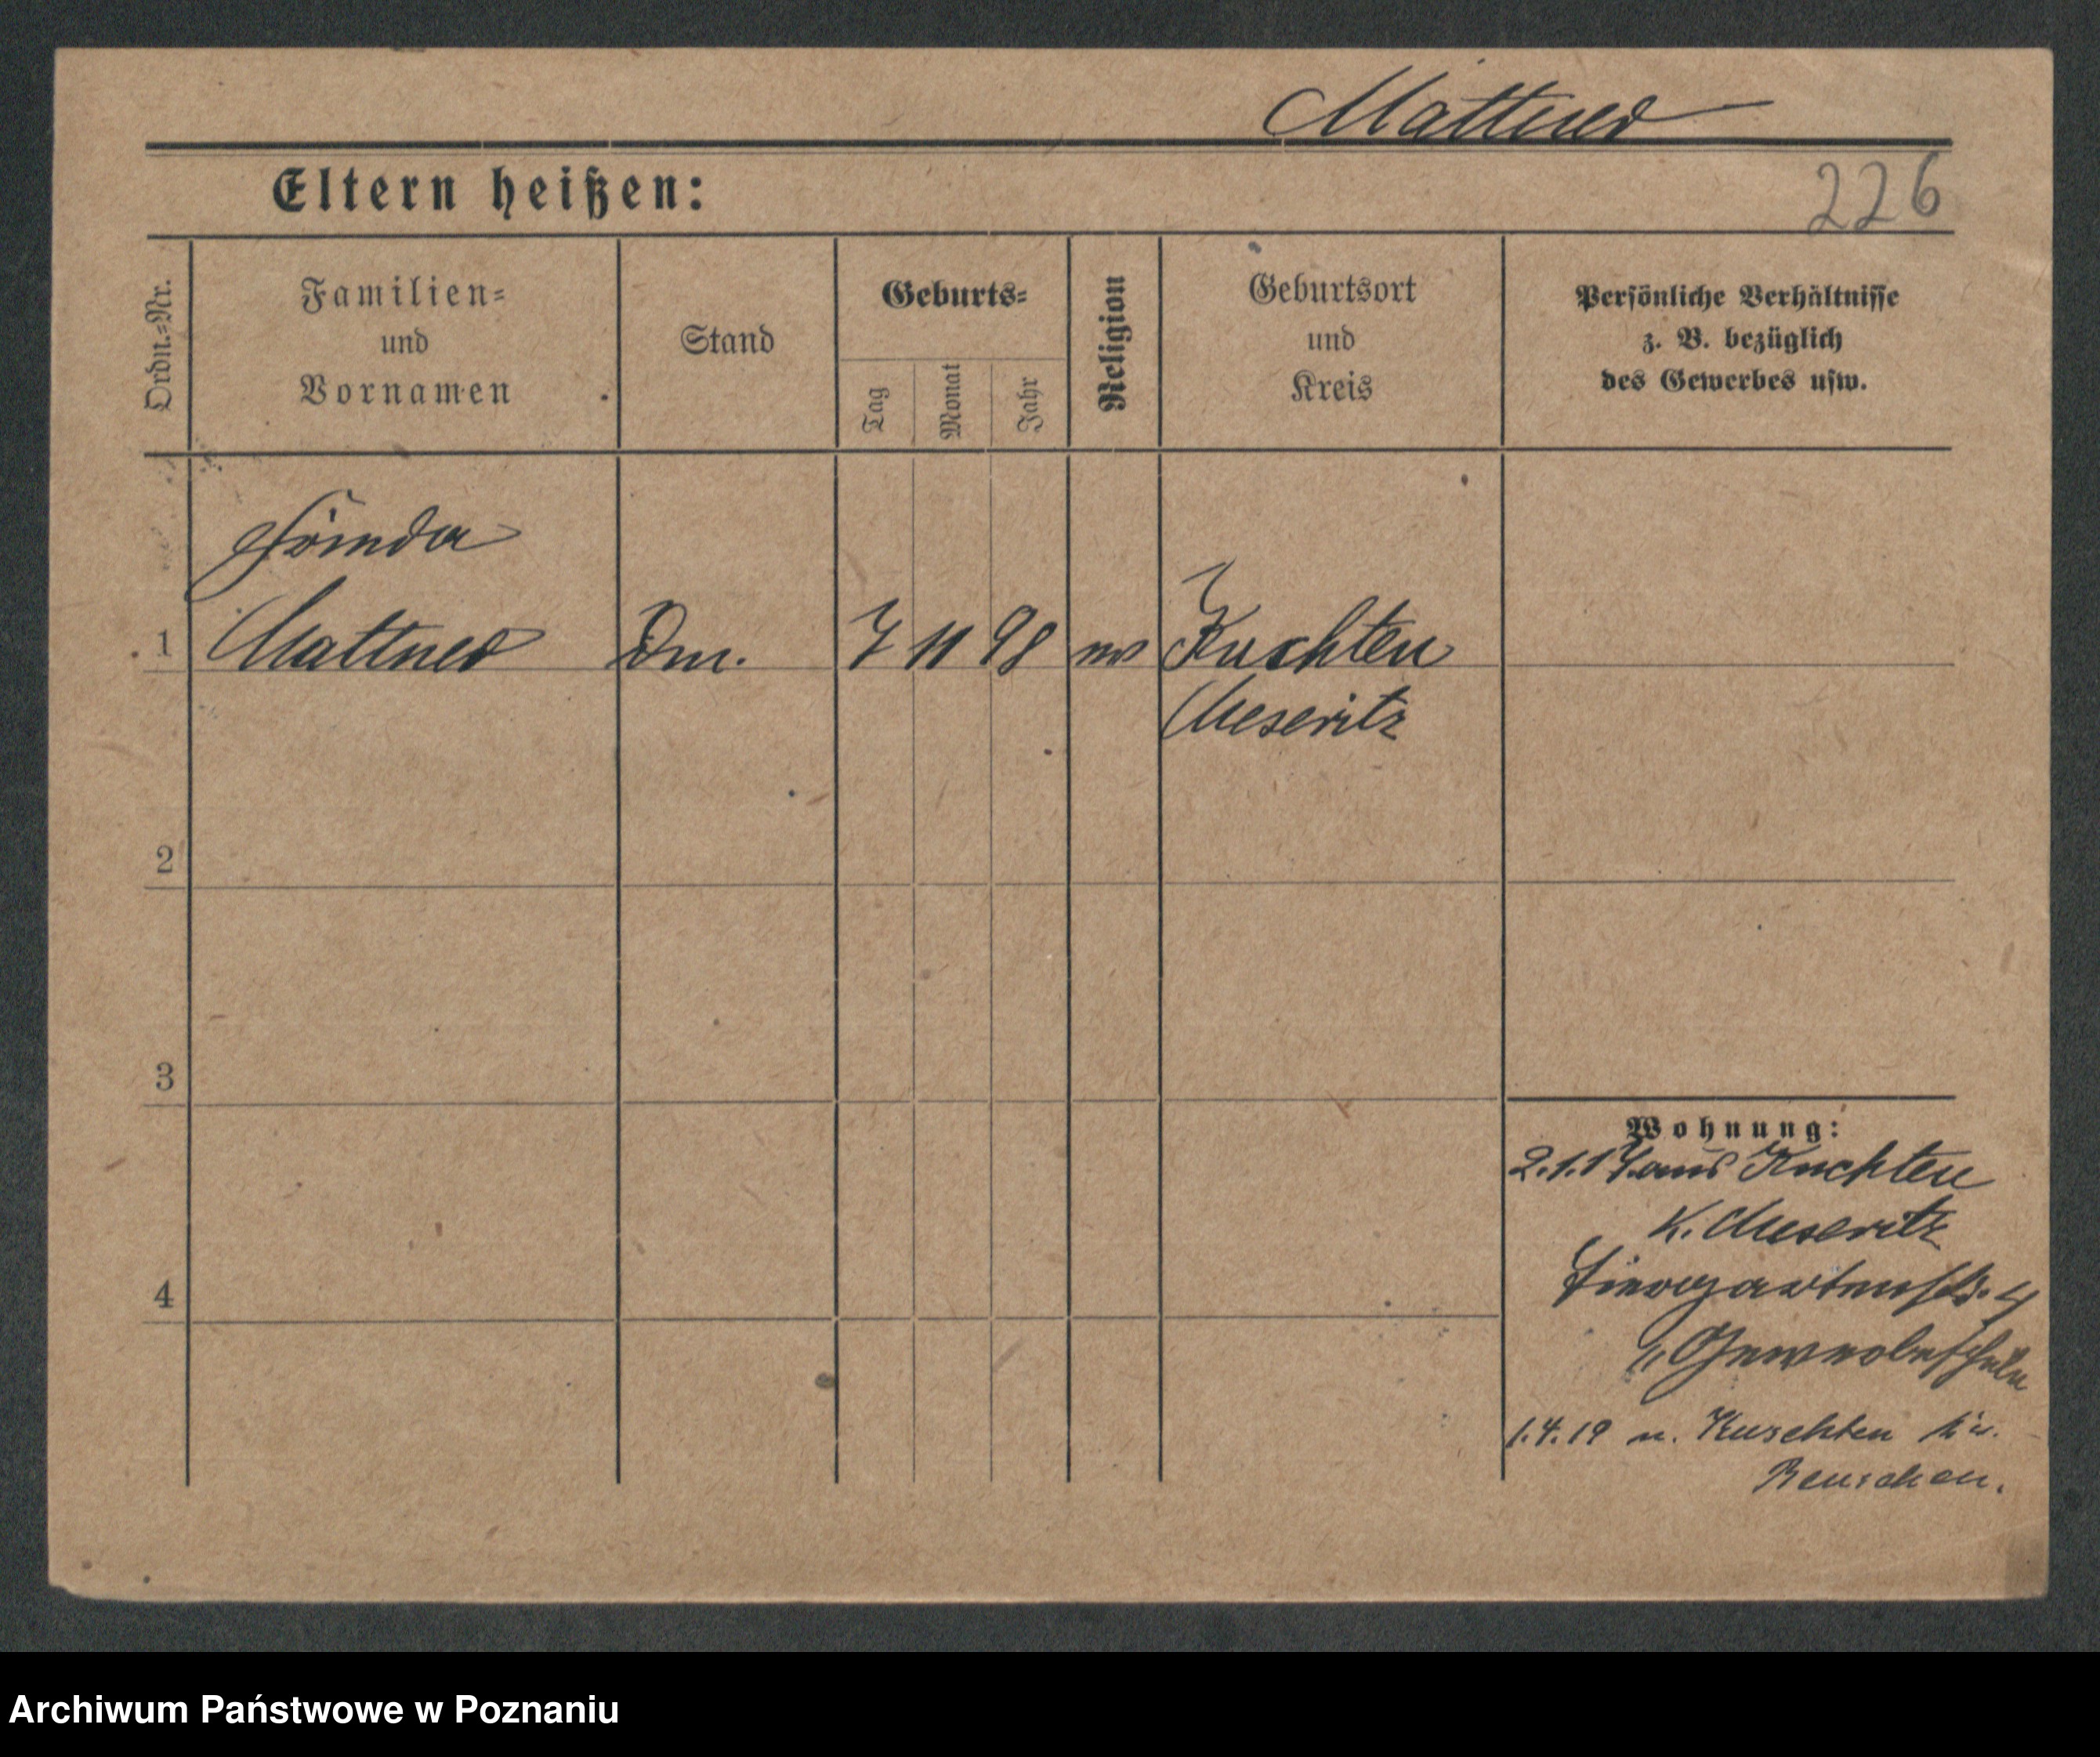 Mattner
Eltern heißen:
226
Ordn.=Nr.
Familien=
und
Vornamen
Stand
Geburts=
Tag
Monat
Jahr
Religion
Geburtsort
und
Kreis
Persönliche Verhältnisse
z. B. bezüglich
des Gewerbes usw.
1
Mattner
7 11 98
Kuschten
Meseritz
2
3
4
Wohnung:
2.1.17 aus Kuschten
K. Meseritz
Tiergartenstr. 4
" Gewerbeschule
1.4.19 n. Kuschten
Bentschen.
Archiwum Państwowe w Poznaniu